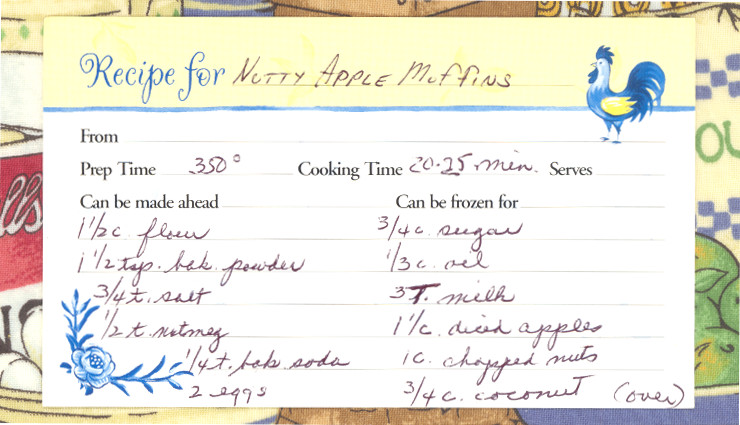 Recipe for NUTTY APPLE MUFFINS
From
Prep Time 350° Cooking Time 20-25 min. Serves
Can be made ahead Can be frozen for
1 1/2 c. flour 3/4 c. sugar
1 1/2 tsp. bak. powder 1/3 c. oil
3/4 t. salt 3 T. milk
1/2 t. nutmeg c. diced apples
1/4 t. bak soda 1 c. chopped nuts
2 eggs 3/4 c. coconut (over)
lls